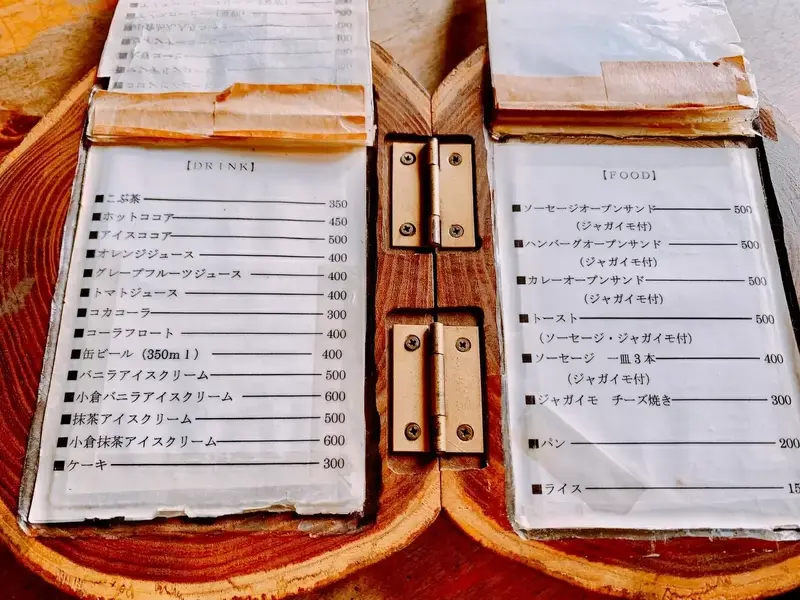 350
400
【DRINK】
■こぶ茶 350
■ホットココア 450
■アイスココア 500
■オレンジジュース 400
■グレープフルーツジュース 400
■トマトジュース 400
■コカコーラ 300
■コーラフロート 400
■缶ビール (350ml) 400
■バニラアイスクリーム 500
■小倉バニラアイスクリーム 600
■抹茶アイスクリーム 500
■小倉抹茶アイスクリーム 600
■ケーキ 300
【FOOD】
■ソーセージオープンサンド 500
(ジャガイモ付)
■ハンバーグオープンサンド 500
(ジャガイモ付)
■カレーオープンサンド 500
(ジャガイモ付)
■トースト 500
(ソーセージ・ジャガイモ付)
■ソーセージ 一皿3本 400
(ジャガイモ付)
■ジャガイモ チーズ焼き 300
■パン 200
■ライス 15